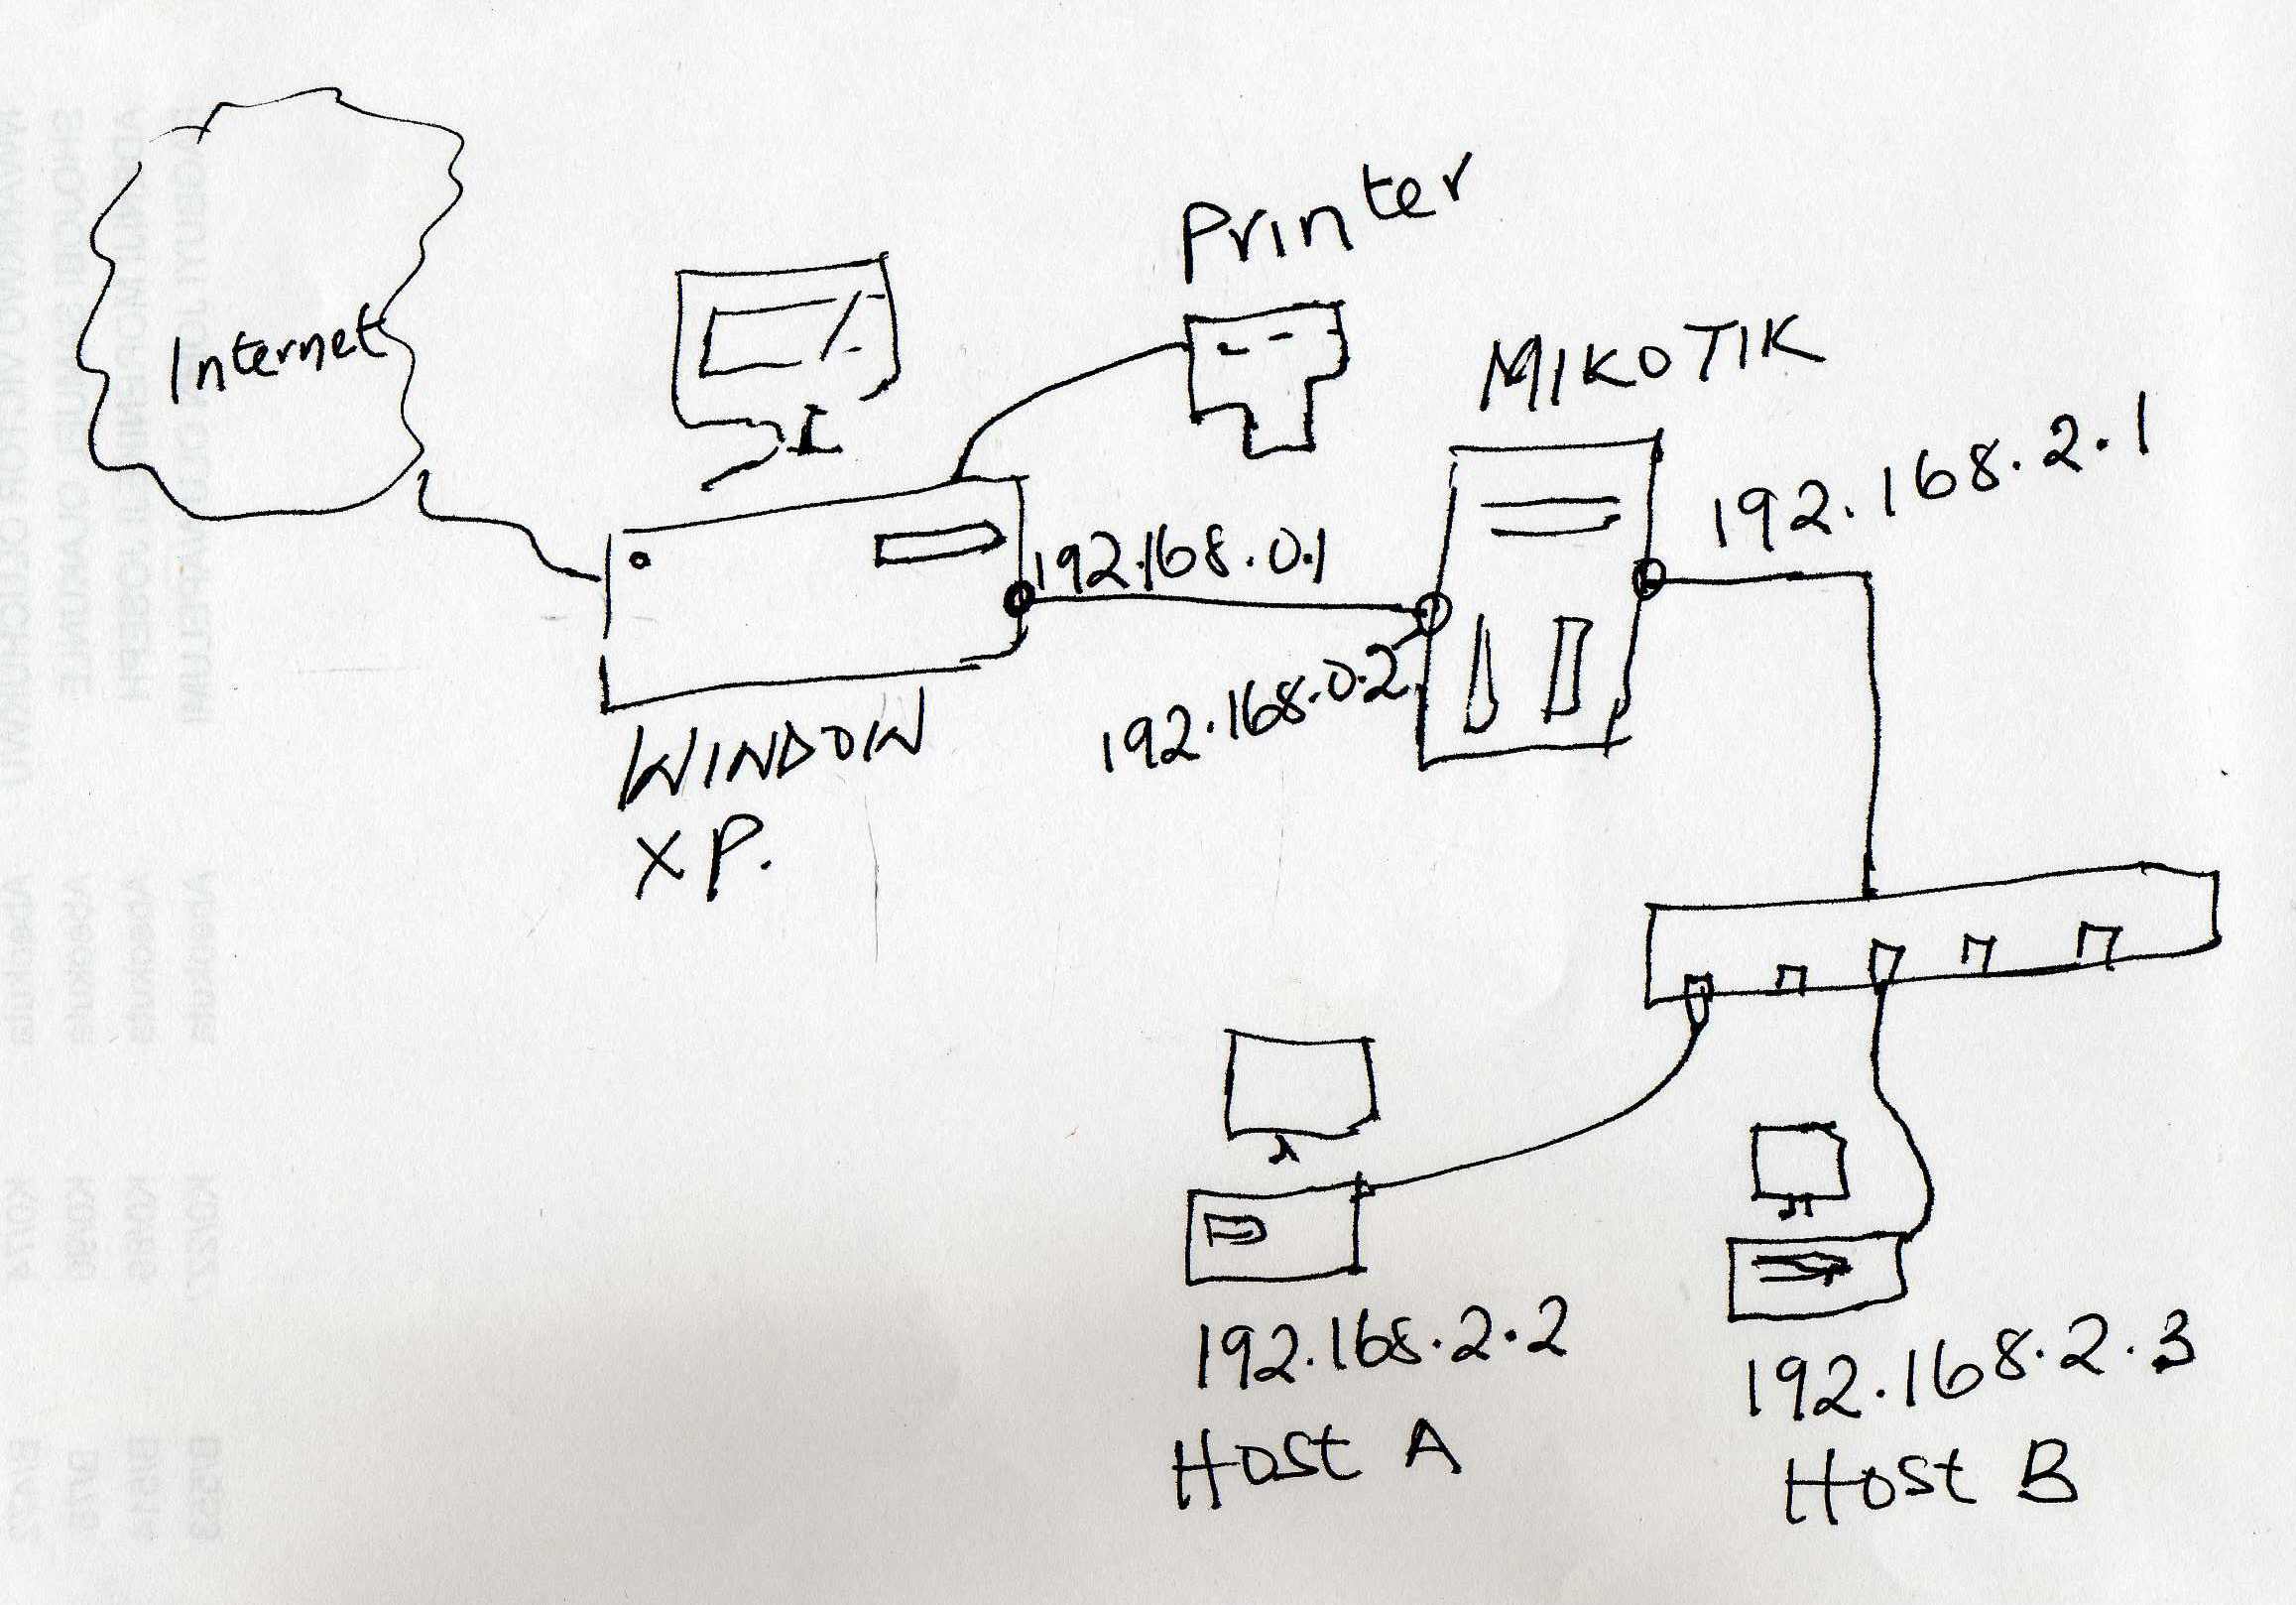 Internet
Printer
MIKOTIK
192.168.2.1
192.168.0.1
192.168.0.2
WINDOW
XP.
192.168.2.2
Host A
192.168.2.3
Host B